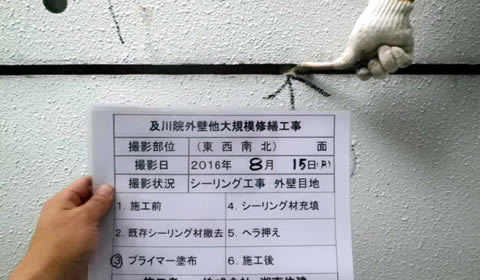 及川院外壁他大規模修繕工事
撮影部位 （東 西 南 北） 面
撮影日 2016年 8月 15日(月)
撮影状況 シーリング工事 外壁目地
1. 施工前 4. シーリング材充填
2. 既存シーリング材撤去 5. ヘラ押え
③ プライマー塗布 6. 施工後